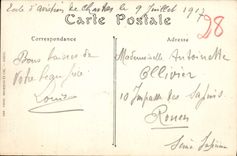 École d'aviation de Chartres le 9 Juillet 1917
D8
Carte Postale
Correspondance
Adresse
Bons baisers de
votre
Louis
Mademoiselle Antoinette
Ollivier
10 Impasse des Sapins
Rouen
Seine Infre